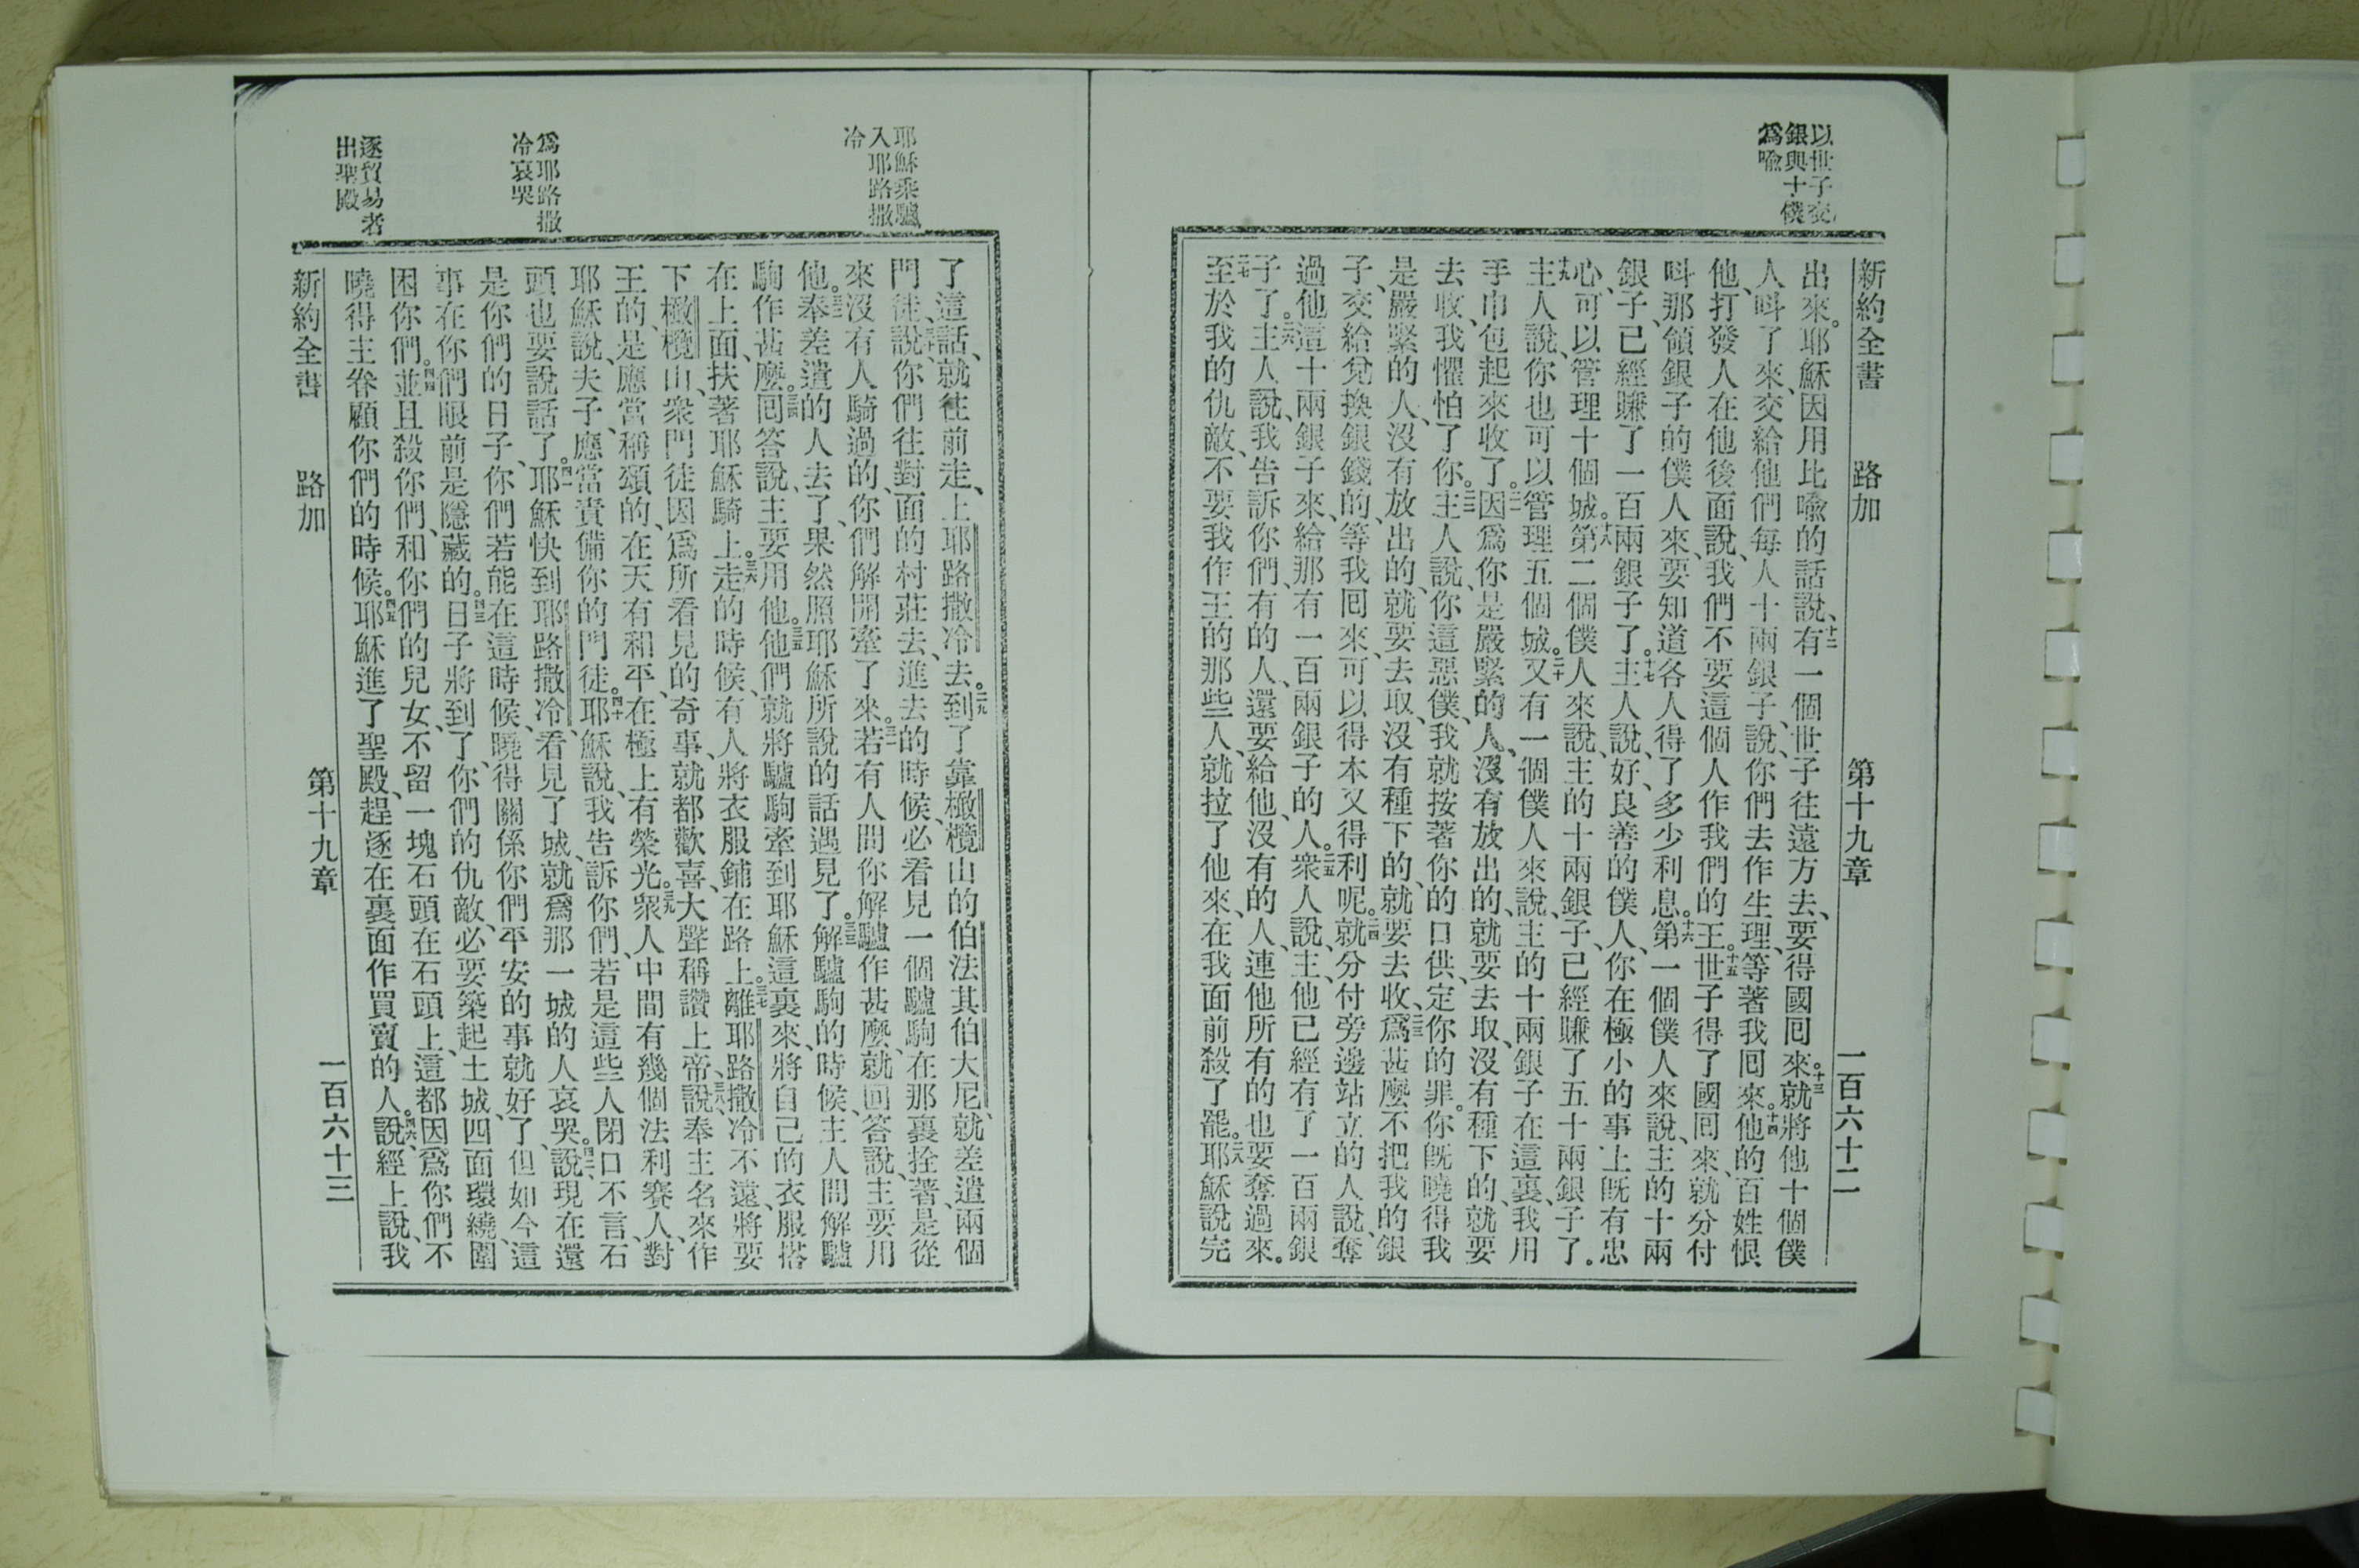 以世子交
銀與十僕
爲喩
新約全書 路加 第十九章 一百六十二
出來。耶穌因用比喩的話說、十二有一個世子往遠方去、要得國囘來。十三就將他十個僕
人、呌了來、交給他們每人十兩銀子、說、你們去作生理、等著我囘來。十四他的百姓恨
他、打發人在他後面說、我們不要這個人作我們的王。十五世子得了國囘來、就分付
呌那領銀子的僕人來、要知道各人得了多少利息。十六第一個僕人來說、主的十兩
銀子、已經賺了一百兩銀子了。十七主人說、好、良善的僕人、你在極小的事上旣有忠
心、可以管理十個城。十八第二個僕人來說、主的十兩銀子、已經賺了五十兩銀子了。
十九主人說、你也可以管理五個城。二十又有一個僕人來說、主的十兩銀子在這裏、我用
手巾包起來收了。二一因爲你是嚴緊的人、沒有放出的、就要去取、沒有種下的、就要
去收、我懼怕了你。二二主人說、你這惡僕、我就按著你的口供、定你的罪。你旣曉得我
是嚴緊的人、沒有放出的、就要去取、沒有種下的、就要去收、二三爲甚麼不把我的銀
子、交給兌換銀錢的、等我囘來、可以得本又得利呢。二四就分付旁邊站立的人說、奪
過他這十兩銀子來、給那有一百兩銀子的人。二五衆人說、主、他已經有了一百兩銀
子了。二六主人說、我告訴你們、有的人、還要給他、沒有的人、連他所有的也要奪過來。
二七至於我的仇敵、不要我作王的那些人、就拉了他來、在我面前殺了罷。二八耶穌說完
耶穌乘驢
入耶路撒
冷
爲耶路撒
冷哀哭
逐貿易者
出聖殿
了這話、就往前走、上耶路撒冷去。二九到了靠橄欖山的伯法其伯大尼、就差遣兩個
門徒說、三十你們往對面的村莊去、進去的時候、必看見一個驢駒在那裏拴著、是從
來沒有人騎過的、你們解開牽了來。三一若有人問你、解驢作甚麼、就回答說、主要用
他。三二奉差遣的人去了、果然照耶穌所說的話遇見了。三三解驢駒的時候、主人問解驢
駒作甚麼。三四囘答說、主要用他。三五他們就將驢駒牽到耶穌這裏來、將自己的衣服搭
在上面、扶著耶穌騎上。三六走的時候、有人將衣服鋪在路上。三七離耶路撒冷不遠、將要
下橄欖山、衆門徒因爲所看見的奇事、就都歡喜、大聲稱讚上帝、三八說、奉主名來作
王的、是應當稱頌的、在天有和平、在極上有榮光。三九衆人中間有幾個法利賽人、對
耶穌說、夫子、應當責備你的門徒。四十耶穌說、我告訴你們、若是這些人閉口不言、石
頭也要說話了。四一耶穌快到耶路撒冷、看見了城、就爲那一城的人哀哭。四二說、現在還
是你們的日子、你們若能在這時候、曉得關係你們平安的事就好了、但如今這
事在你們眼前是隱藏的。四三日子將到了、你們的仇敵、必要築起土城、四面環繞、圍
困你們。四四並且殺你們、和你們的兒女、不留一塊石頭在石頭上、這都因爲你們不
曉得主眷顧你們的時候。四五耶穌進了聖殿、趕逐在裏面作買賣的人。四六說、經上說、我
新約全書 路加 第十九章 一百六十三